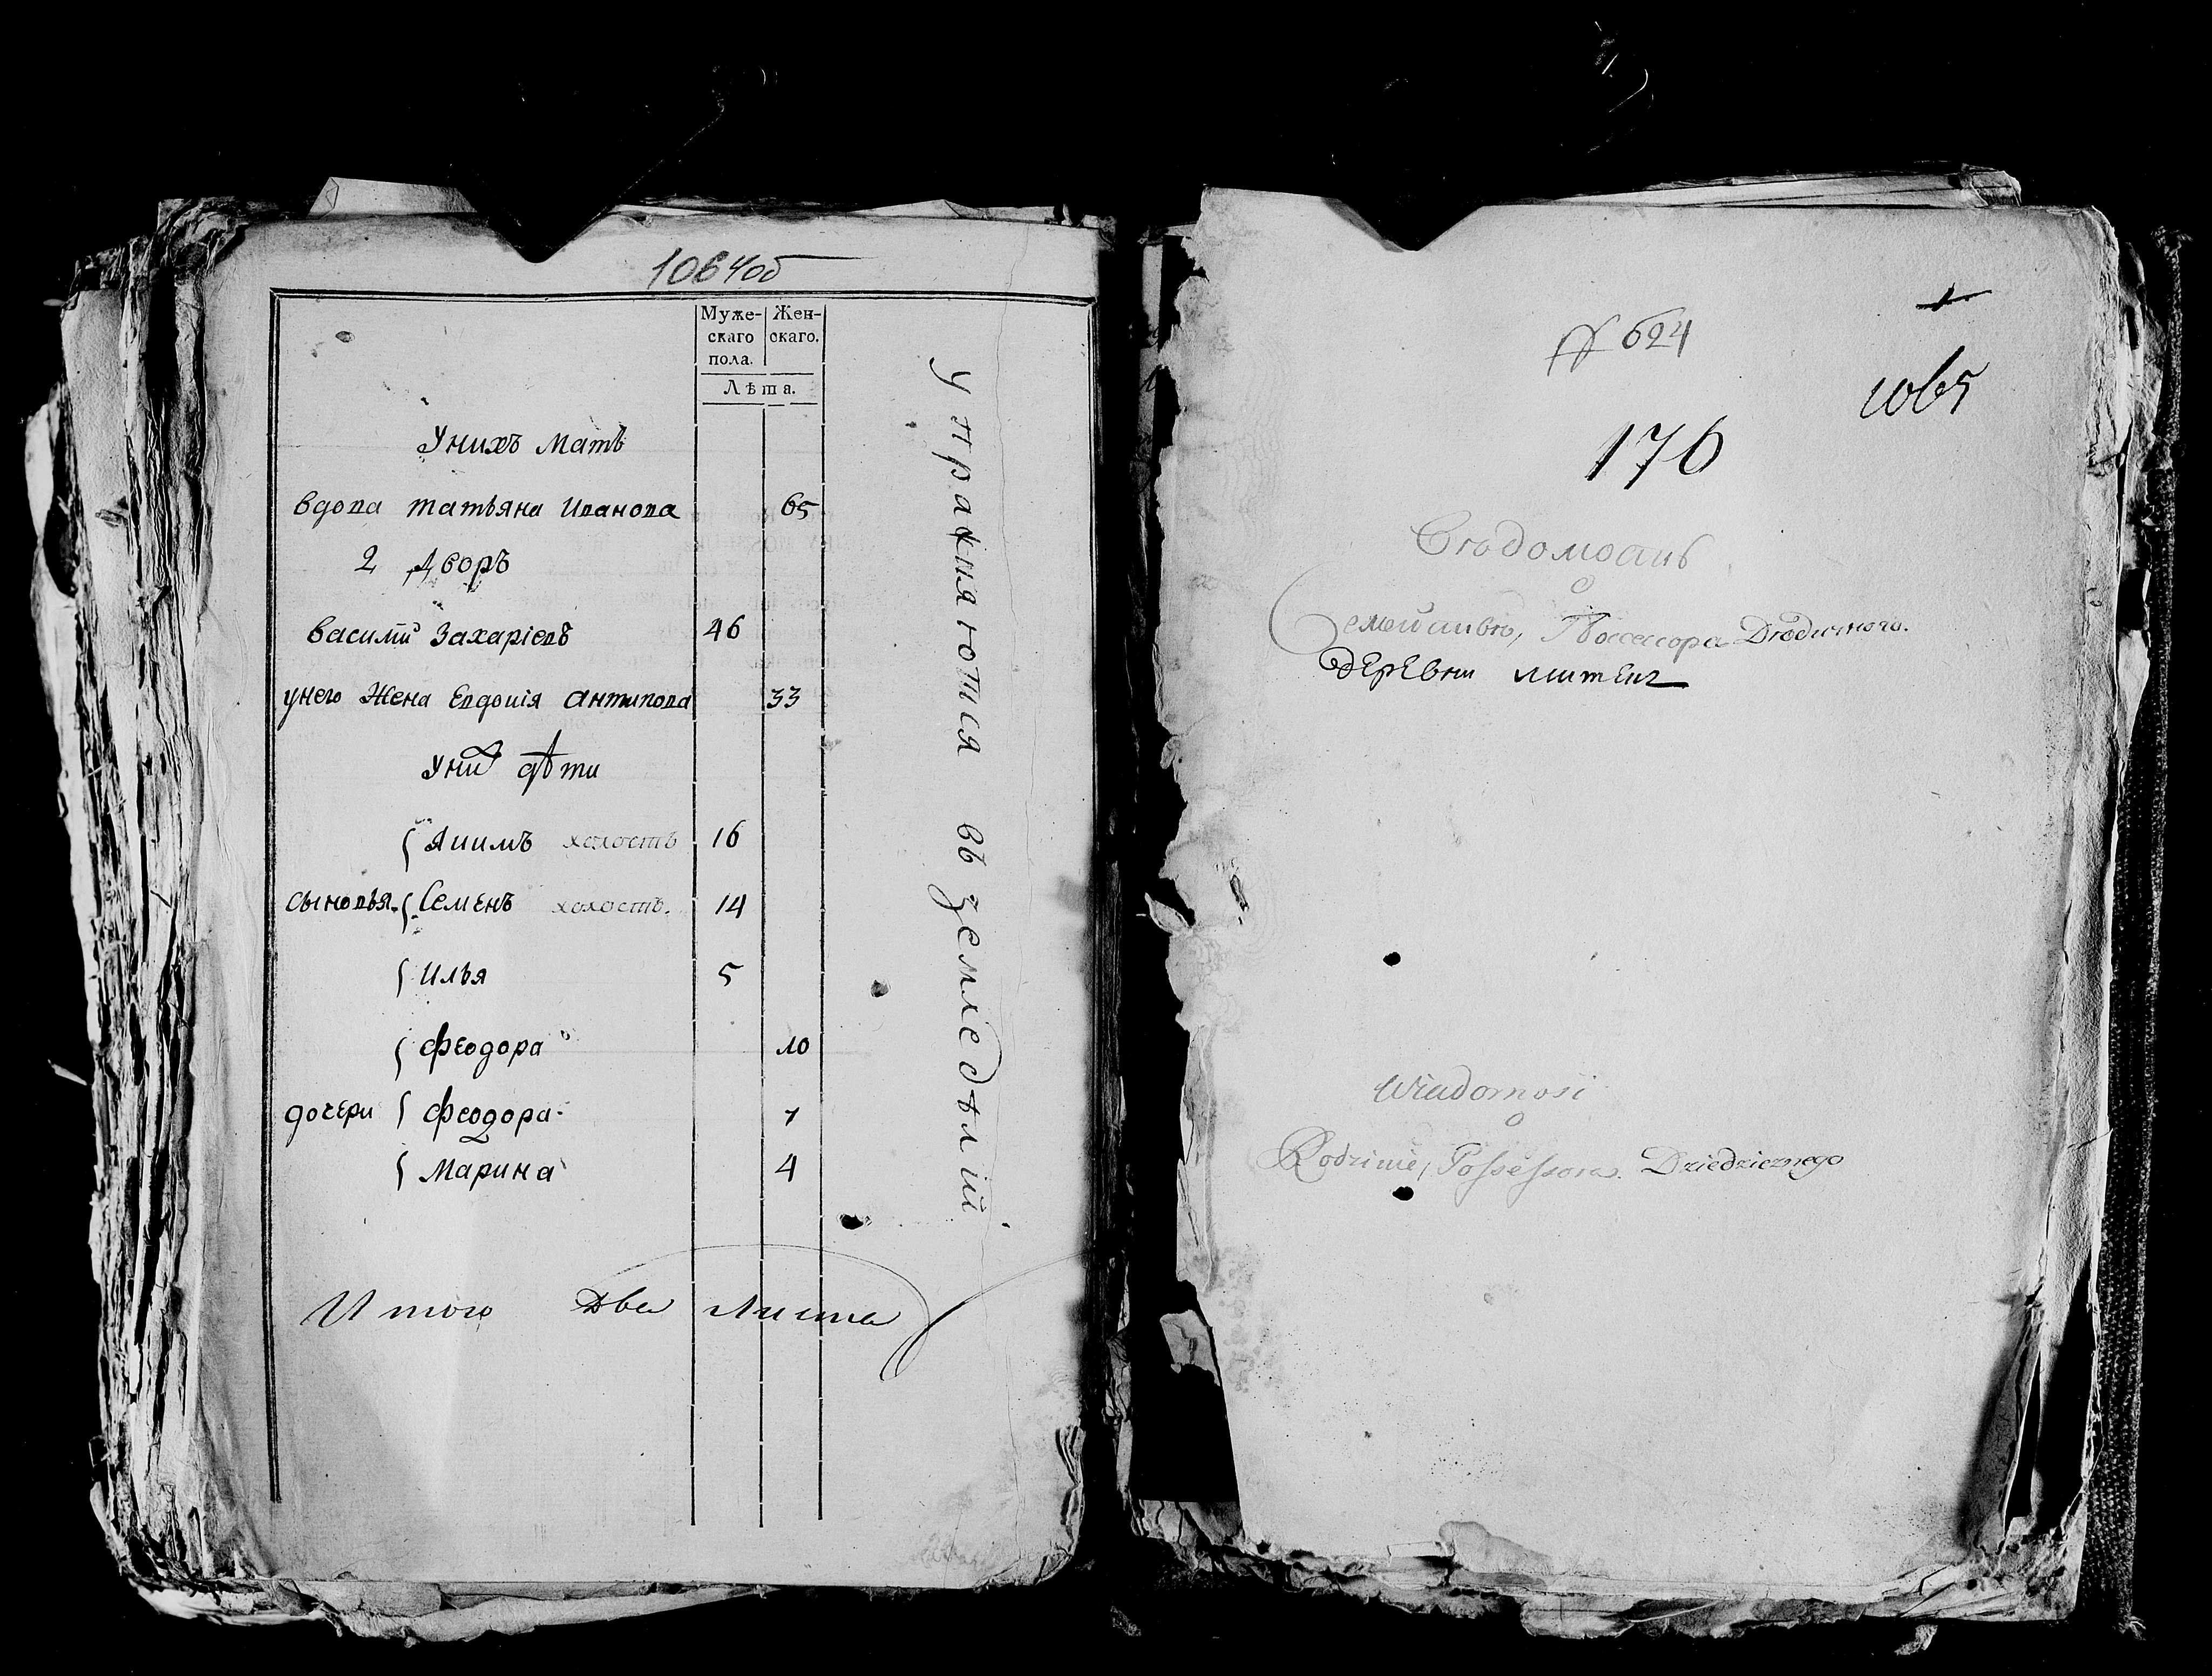 1064об
Муже- Жен-
скаго скаго.
пола.
Лѣта.
Унихъ мать
вдова татьяна иванова 65
2 дворъ
василий Захаріевъ 46
унего Жена Евдокія антипова 33
Уних дѣти
{ Якимъ холостъ 16
сыновья { Семенъ холостъ. 14
{ илья 5
{ феодора 10
дочери { феодора 7
{ Марина 4
Итого Два Листа
Упражняются въ земледѣлий
1
№ 624
1065
176
Вѣдомость
о
Семействѣ, Поссессора Дѣдичного.
деревни
Wiadomość
o
Rodzinie, Possessora Dziedzicznego